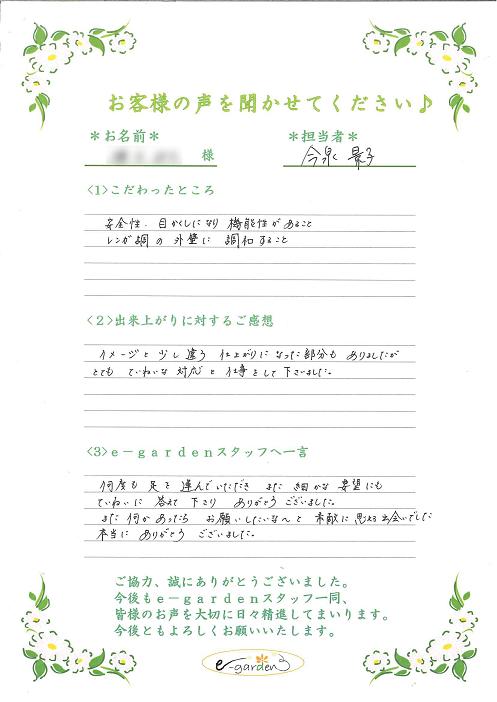 お客様の声を聞かせてください♪
＊お名前＊ ＊担当者＊
様 今泉 景子
<1>こだわったところ
安全性、目かくしになり 機能性があること
レンガ調の外壁に 調和すること
<2>出来上がりに対するご感想
イメージと少し違う 仕上がりになった部分も ありましたが
とても ていねいな 対応と 仕事をして下さいました。
<3>e－gardenスタッフへ一言
何度も 足を 運んでいただき また 細かな 要望にも
ていねいに 答えて 下さり ありがとうございました。
また 何かあったら お願いしたいなんと 素敵に 思える 出会いでした
本当に ありがとう ございました。
ご協力、誠にありがとうございました。
今後もe－gardenスタッフ一同、
皆様のお声を大切に日々精進してまいります。
今後ともよろしくお願いいたします。
e-garden